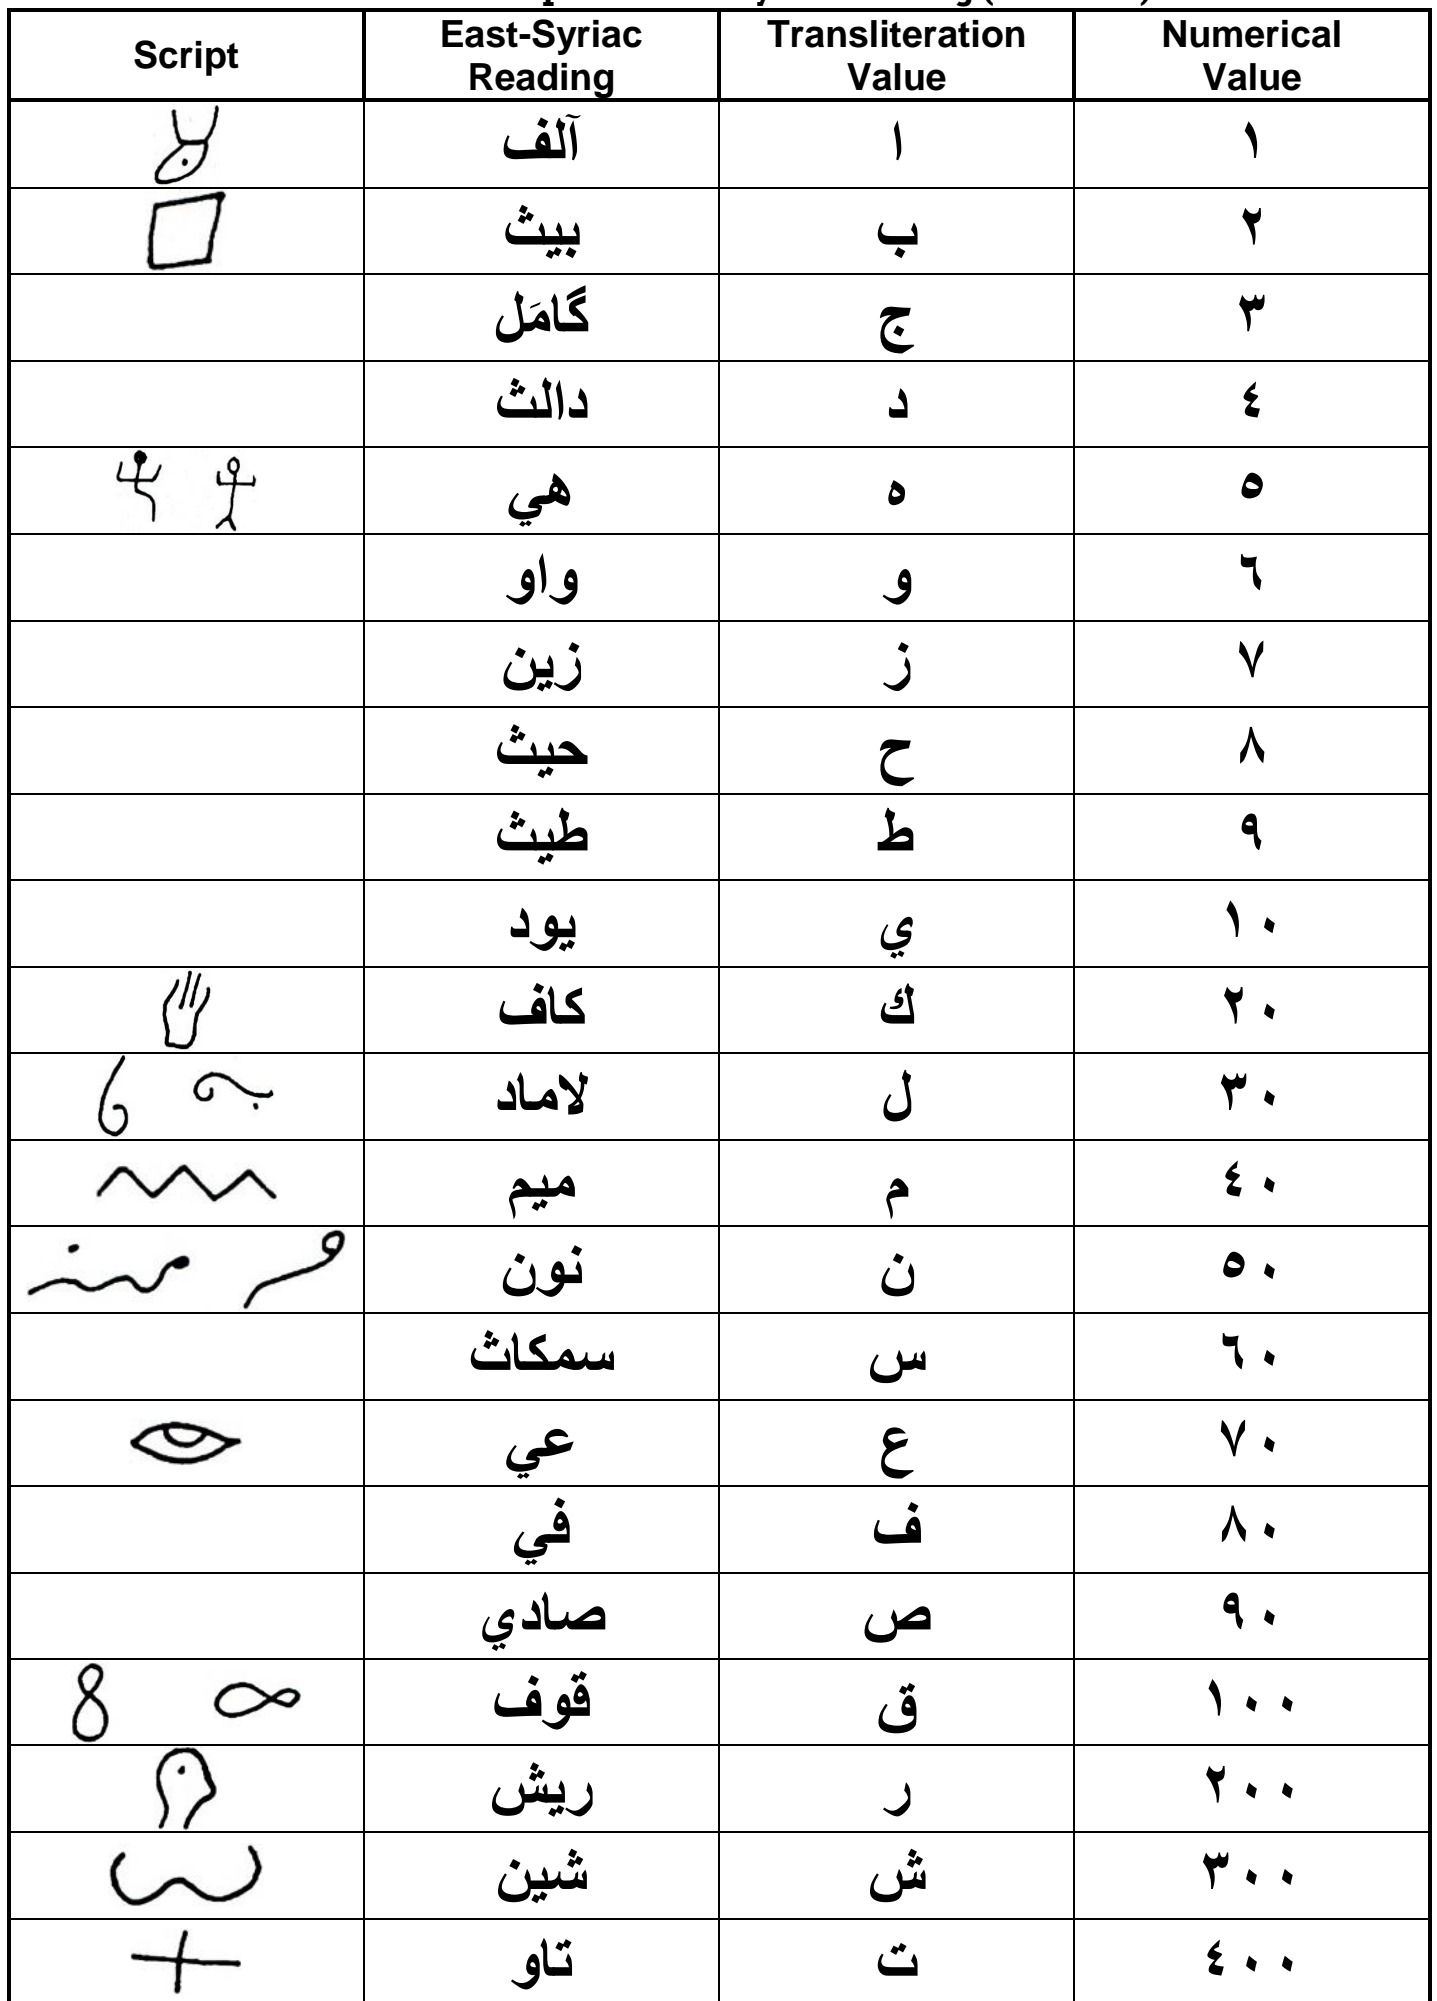 Script East-Syriac Reading Transliteration Value Numerical Value
آلف ا ١
بيث ب ٢
گامَل ج ٣
دالث د ٤
هي ه ٥
واو و ٦
زين ز ٧
حيث ح ٨
طيث ط ٩
يود ي ١٠
كاف ك ٢٠
لاماد ل ٣٠
ميم م ٤٠
نون ن ٥٠
سمكاث س ٦٠
عي ع ٧٠
في ف ٨٠
صادي ص ٩٠
قوف ق ١٠٠
ريش ر ٢٠٠
شين ش ٣٠٠
تاو ت ٤٠٠